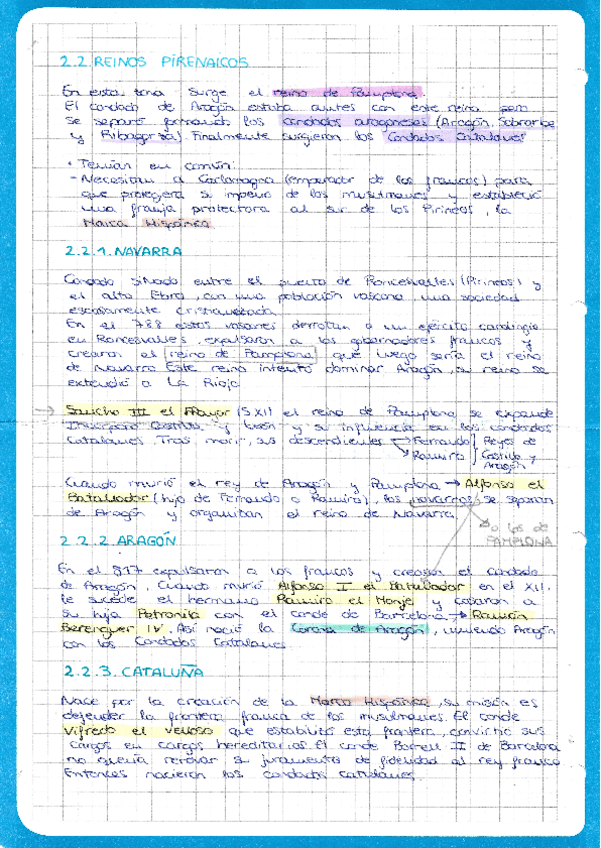 2.2. REINOS PIRENAICOS
En esta zona surge el reino de Pamplona.
El condado de Aragón estaba antes con este reino pero
se separó formando los condados aragoneses (Aragón, Sobrarbe
y Ribagorza). Finalmente surgieron los Condados Catalanes
• Tenían en común:
- Necesitan a Carlomagno (emperador de los francos) para
que protegiera su imperio de los musulmanes y estableció
una franja protectora al sur de los Pirineos, la
Marca Hispánica
2.2.1. NAVARRA
Condado situado entre el puerto de Roncesvalles (Pirineos) y
el alto Ebro, con una población vascona, una sociedad
escasamente cristianizada.
En el 788 estos vascones derrotan a un ejército carolingio
en Roncesvalles, expulsaron a los gobernadores francos y
crearon el reino de Pamplona que luego sería el reino
de Navarra. Este reino intentó dominar Aragón, su reino se
extendió a La Rioja
→ Sancho III el Mayor (S.XI) el reino de Pamplona se expande
Incorpora Castilla y León y su influencia en los condados
Catalanes. Tras morir, sus descendientes → Fernando Reyes de
→ Ramiro Castilla y
Aragón
Cuando murió el rey de Aragón y Pamplona → Alfonso el
Batallador (hijo de Fernando o Ramiro), los navarros se separan
de Aragón y organizan el reino de Navarra.
→ o los de
PAMPLONA
2.2.2 ARAGÓN
En el 817 expulsaron a los francos y crearon el condado
de Aragón. Cuando murió Alfonso I el Batallador en el XII,
le sucede el hermano Ramiro el Monje y casaron a
su hija Petronila con el conde de Barcelona → Ramón
Berenguer IV. Así nació la Corona de Aragón, uniendo Aragón
con los Condados Catalanes.
2.2.3. CATALUÑA
Nace por la creación de la Marca Hispánica, su misión es
defender la frontera franca de los musulmanes. El conde
Vifredo el Velloso que estabiliza esta frontera, convirtió sus
cargos en cargos hereditarios. El conde Borrell II de Barcelona
no quería renovar su juramento de fidelidad al rey franco.
Entonces nacieron los condados catalanes.